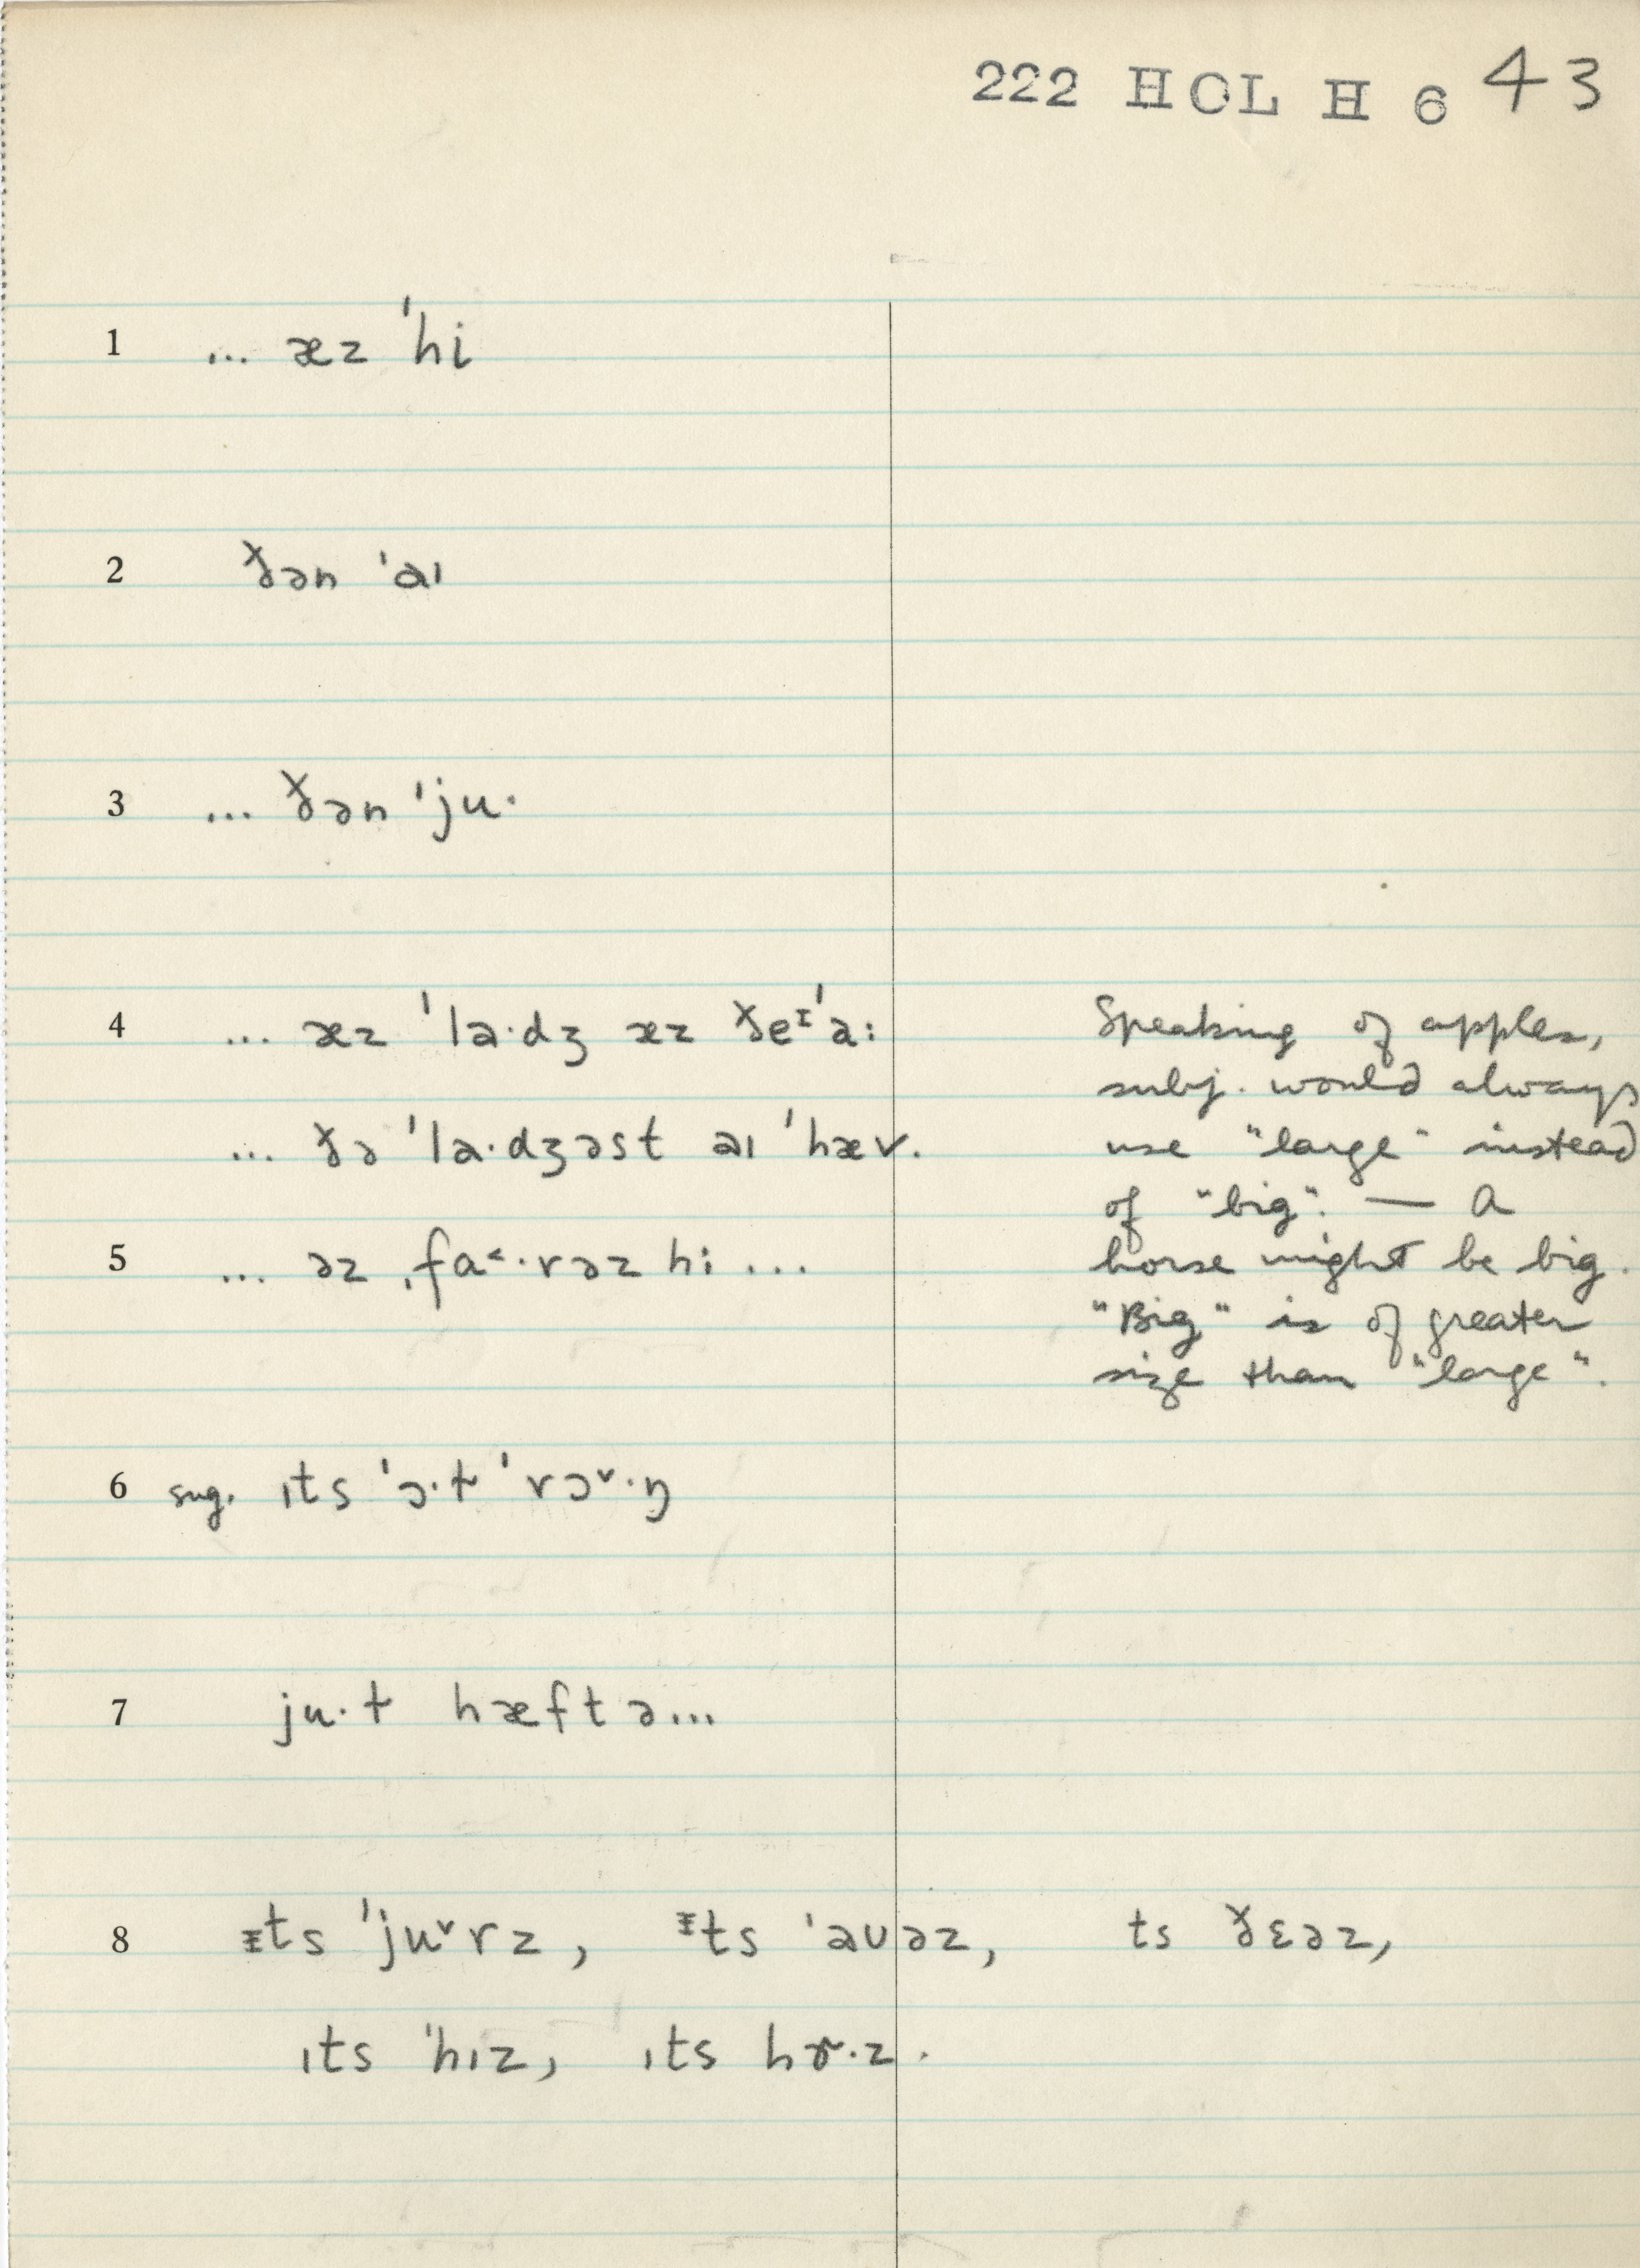 222 HOL H 6 43
1 ... æz ˈhi
2 ðən ˈaɪ
3 ... ðən ˈju·
4 ... æz ˈla·dʒ æz ðeᶦˈa:
Speaking of apples,
subj. would always
... ðə ˈla·dʒəst aɪ ˈhæv.
use "large" instead
of "big". — A
5 ... əz ˌfa˂·rəz hi ...
horse might be big.
"Big" is of greater
size than "large".
6 sug. ɪts ˈɔ·ɫ ˈrɔ˅·ŋ
7 ju·ɫ hæftə...
8 ɪts ˈju˅rz, ᶦts ˈaʊəz, ts ðɛəz,
ɪts ˈhɪz, ɪts hɚ·z.